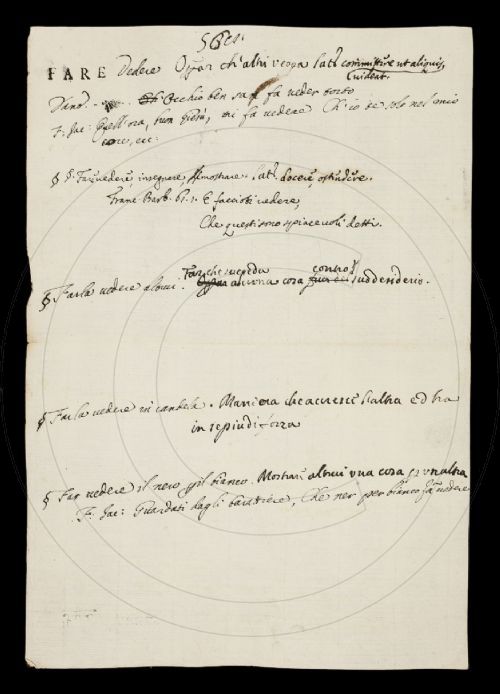 FARE Vedere Oprar ch'altri vegga lat. committere ut aliquis
videat.
Occhio ben san fa veder torto
F. Jac: Quell'ora, buon Giesù, mi fa vedere Ch'io te solo nel mio
core, ecc:
§ §. Far vedere, insegnare, dimostrare. Lat. docere, ostendere.
Franc Barb. 61.1. E faccioti vedere,
Che questi sono spiacevoli detti.
Far che si veda contro
§ Farla vedere altrui. alcuna cosa suo desiderio.
§ Farla vedere in candela. Maniera che accresce l'altra ed ha
in se più di forza
§ Far vedere il nero pel bianco. Mostrare altrui una cosa per un'altra
F. Jac: Guardati dagli barattiere, Che ner per bianco fa vedere